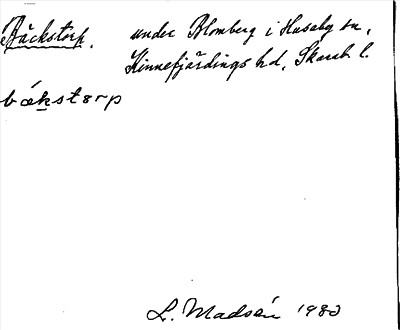 Bäckstorp. under Blomberg i Husaby sn,
Kinnefjärdings hd, Skarab. l.
bäkstorp
L. Madsén 1983